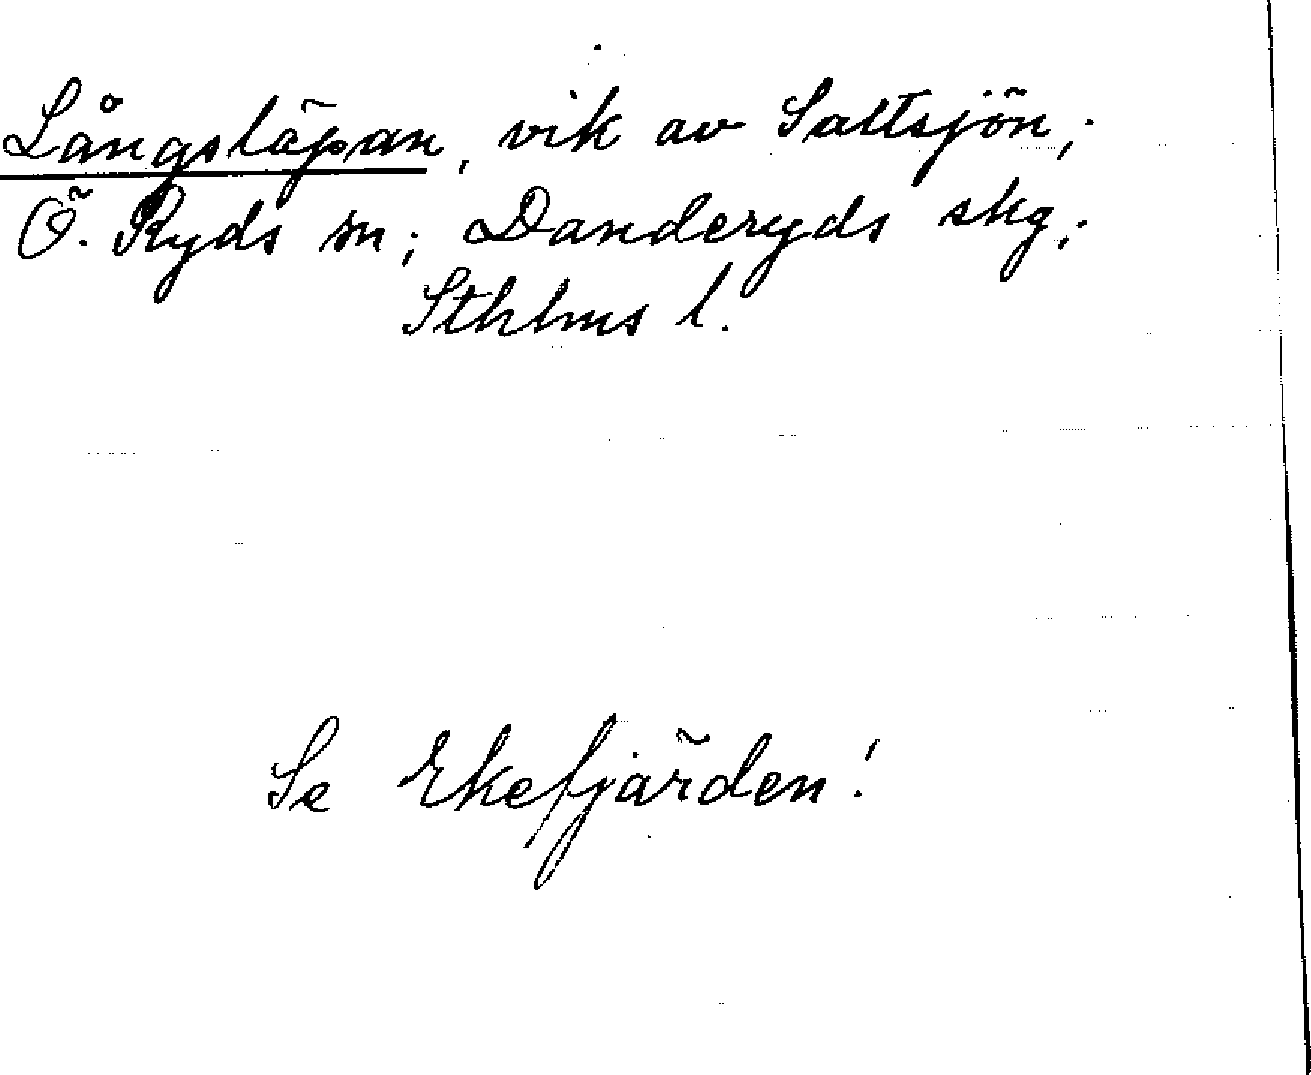 Långsläpan, vik av Saltsjön;
Ö. Ryds sn; Danderyds skg;
Sthlms l.
Se Ekefjärden!